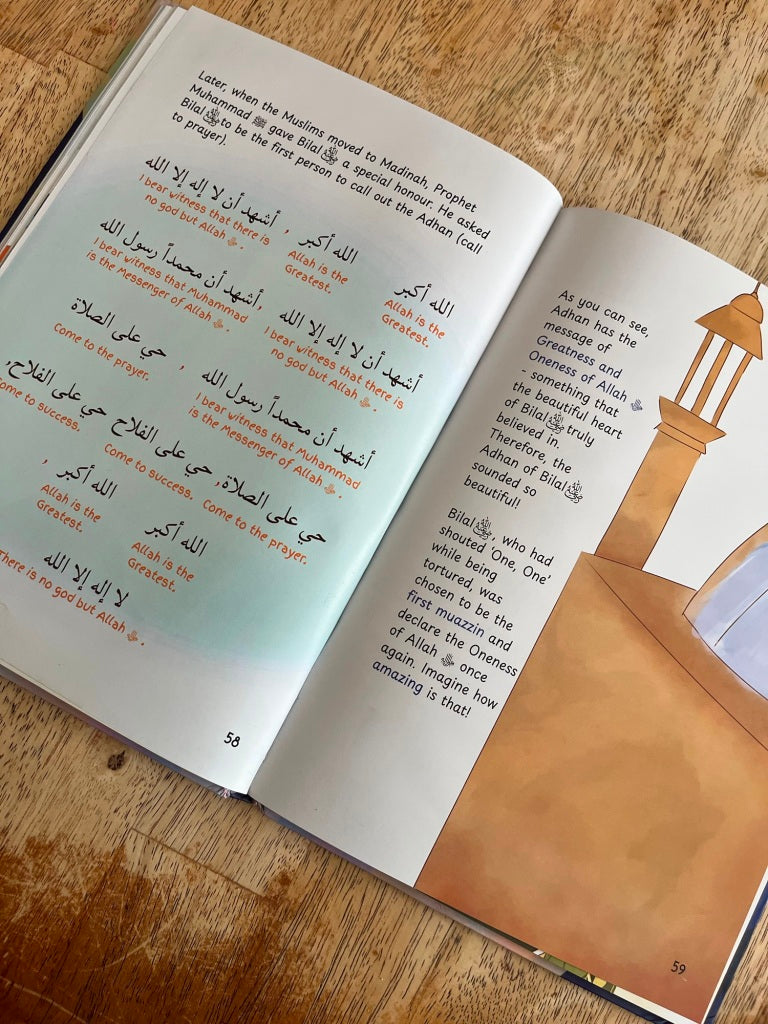 Later, when the Muslims moved to Madinah, Prophet
Muhammad ﷺ gave Bilal a special honour. He asked
Bilal to be the first person to call out the Adhan (call
to prayer).
الله أكبر
Allah is the
Greatest.
الله أكبر ,
Allah is the
Greatest.
أشهد أن لا إله إلا الله
I bear witness that there is
no god but Allah .
أشهد أن لا إله إلا الله
I bear witness that there is
no god but Allah .
أشهد أن محمداً رسول الله,
I bear witness that Muhammad
is the Messenger of Allah .
أشهد أن محمداً رسول الله
I bear witness that Muhammad
is the Messenger of Allah .
حي على الصلاة ,
Come to the prayer.
حي على الصلاة,
Come to the prayer.
حي على الفلاح
Come to success.
حي على الفلاح,
ome to success.
الله أكبر
Allah is the
Greatest.
الله أكبر ,
Allah is the
Greatest.
لا إله إلا الله
There is no god but Allah .
58
As you can see,
Adhan has the
message of
Greatness and
Oneness of Allah
- something that
the beautiful heart
of Bilal truly
believed in.
Therefore, the
Adhan of Bilal
sounded so
beautiful!
Bilal, who had
shouted ‘One, One’
while being
tortured, was
chosen to be the
first muazzin and
declare the Oneness
of Allah once
again. Imagine how
amazing is that!
59